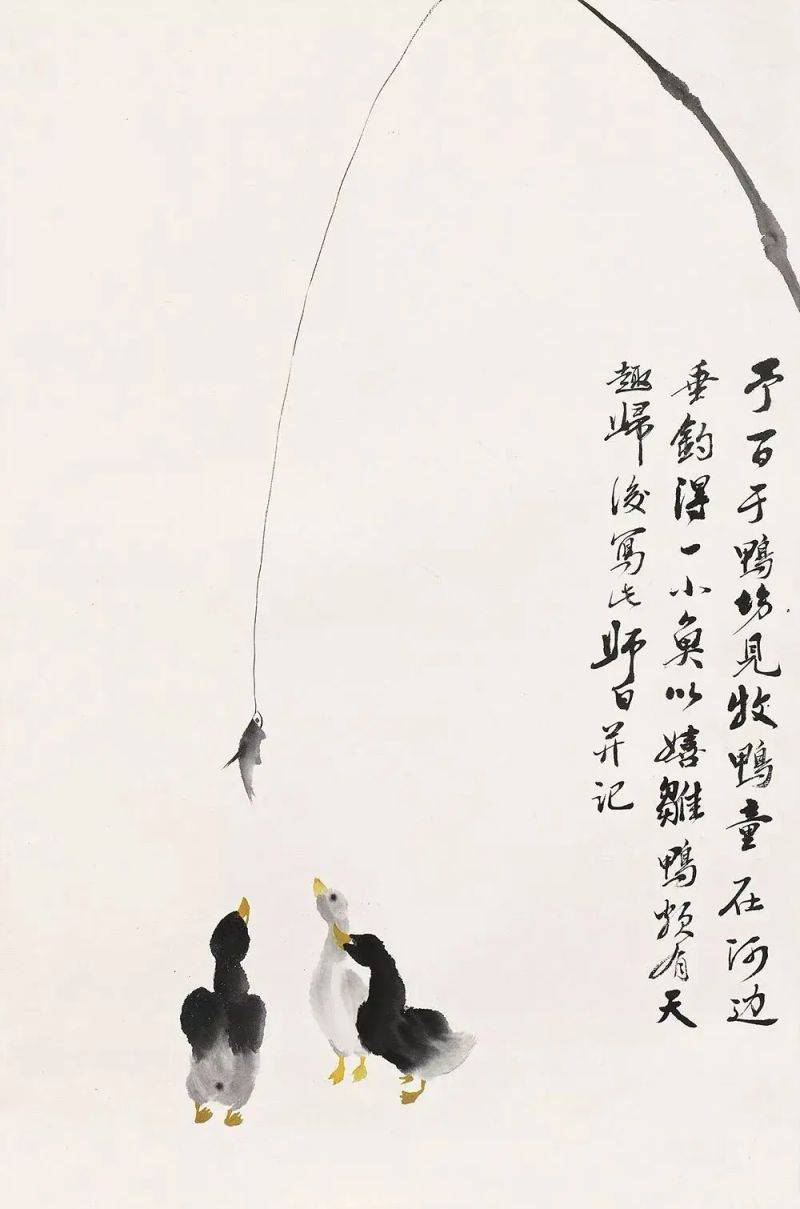 予百于鴨坊見牧鴨童在河边
垂釣得一小魚以嬉雛鴨頗有天
趣歸後寫此師白并记